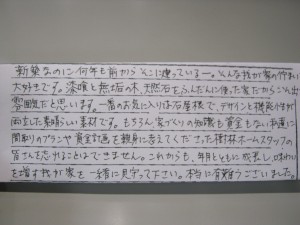 新築なのに何年も前からそこに建っている―。そんな我が家の佇まいが
大好きです。漆喰と無垢の木、天然石をふんだんに使った家だからこそ出る
雰囲気だと思います。一番のお気に入りは石屋根で、デザインと機能性が
両立した素晴らしい素材です。もちろん家づくりの知識も資金もない私達に
間取りのプランや資金計画を親身に考えてくださった樹林ホームスタッフの
皆さんを忘れることはできません。これからも、年月とともに成長し、味わい
を増す我が家を一緒に見守って下さい。本当に有難うございました。